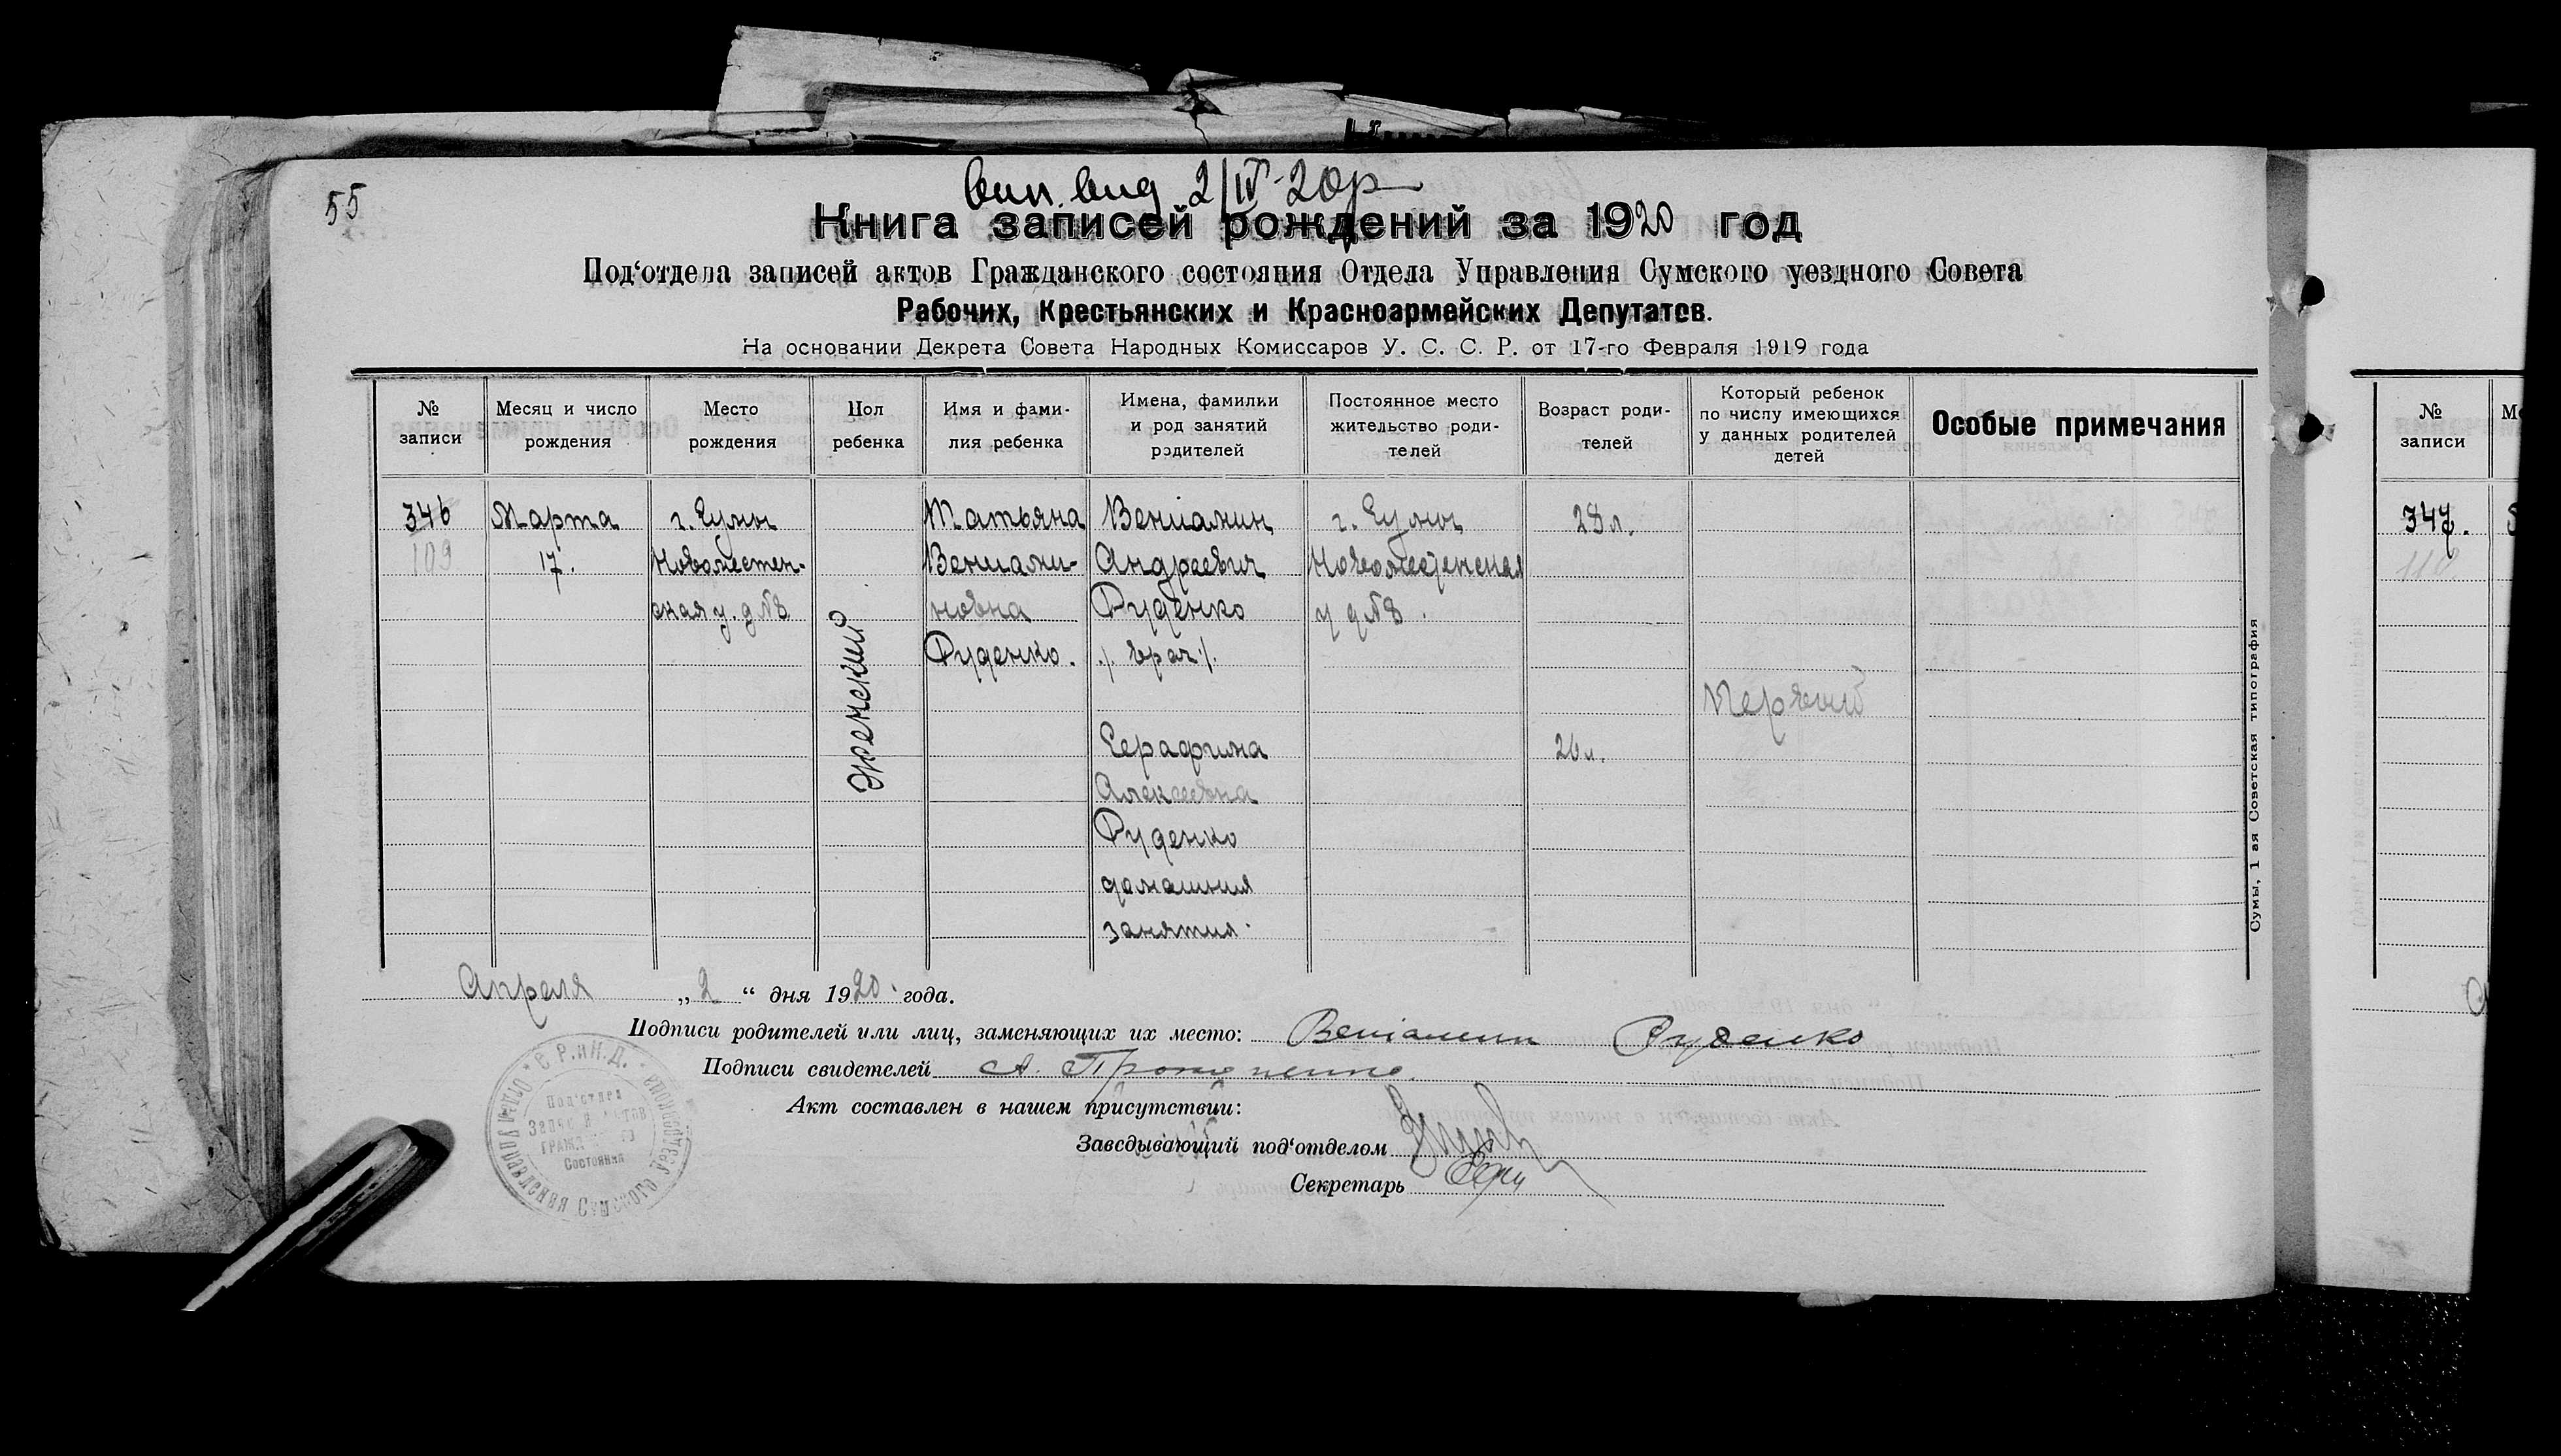 55
вип. вид 2/IV-20р
Книга записей рождений за 1920 год
Под‘отдела записей актов Гражданского состояния Отдела Управления Сумского уездного Совета
Рабочих, Крестьянских и Красноармейских Депутатов.
На основании Декрета Совета Народных Комиссаров У. С. С. Р. от 17-го Февраля 1919 года
№ записи
Месяц и число рождения
Место рождения
Пол ребенка
Имя и фами-
лия ребенка
Имена, фамилии
и род занятий
родителей
Постоянное место
жительство роди-
телей
Возраст роди-
телей
Который ребенок
по числу имеющихся
у данных родителей
детей
Особые примечания
346
109
Марта
17.
г. Сумы
Новоместен-
ская у. д №8
женский
Татьяна
Вениами-
новна
Руденко.
Вениамин
Андреевич
Руденко
/. врач /.
Серафима
Алексеевна
Руденко
домашния
занятия.
г. Сумы
Новоместенская
у д №8.
28 л.
26 л.
Первый
Сумы, 1 ая Советская типография
Апреля „ 2 “ дня 1920 года.
Подписи родителей или лиц, заменяющих их место: Веніамин Руденко
Подписи свидетелей А.
Акт составлен в нашем присутствии:
Заведывающий под‘отделом
Секретарь
С. Р. и К. Д.
Отдел Управления Сумского
Под‘отдел
Состояния
№
записи
347.
110.